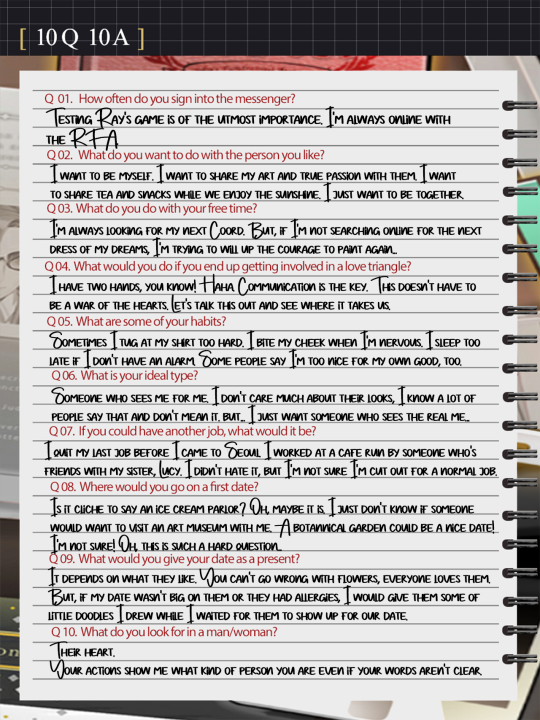 [ 10Q 10A ]
Q 01. How often do you sign into the messenger?
Testing Ray's game is of the utmost importance. I'm always online with
the RFA
Q 02. What do you want to do with the person you like?
I want to be myself. I want to share my art and true passion with them. I want
to share tea and snacks while we enjoy the sunshine. I just want to be together.
Q 03. What do you do with your free time?
I'm always looking for my next Coord. But, if I'm not searching online for the next
dress of my dreams, I'm trying to will up the courage to paint again...
Q 04. What would you do if you end up getting involved in a love triangle?
I have two hands, you know! Haha. Communication is the key. This doesn't have to
be a war of the hearts. Let's talk this out and see where it takes us.
Q 05. What are some of your habits?
Sometimes I tug at my shirt too hard. I bite my cheek when I'm nervous. I sleep too
late if I don't have an alarm. Some people say I'm too nice for my own good, too.
Q 06. What is your ideal type?
Someone who sees me for me. I don't care much about their looks, I know a lot of
people say that and don't mean it, but... I just want someone who sees the real me...
Q 07. If you could have another job, what would it be?
I quit my last job before I came to Seoul. I worked at a cafe run by someone who's
friends with my sister, Lucy. I didn't hate it, but I'm not sure I'm cut out for a normal job.
Q 08. Where would you go on a first date?
Is it cliche to say an ice cream parlor? Oh, maybe it is. I just don't know if someone
would want to visit an art museum with me. A botannical garden could be a nice date!
I'm not sure! Oh, this is such a hard question...
Q 09. What would you give your date as a present?
It depends on what they like. You can't go wrong with flowers, everyone loves them.
But, if my date wasn't big on them or they had allergies, I would give them some of
little doodles I drew while I waited for them to show up for our date.
Q 10. What do you look for in a man/woman?
Their heart.
Your actions show me what kind of person you are even if your words aren't clear.